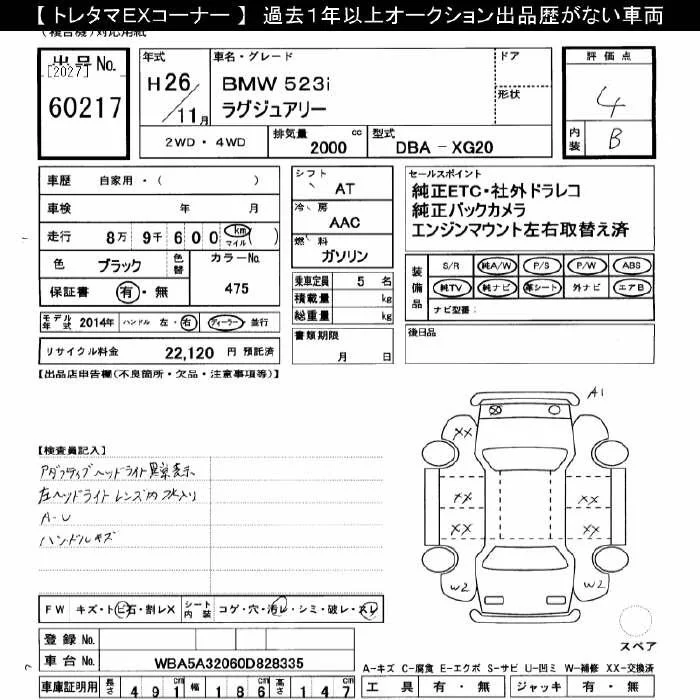 【 トレタマEXコーナー 】 過去1年以上オークション出品歴がない車両
出品No.
[2027]
60217
年式
H26/11月
車名・グレード
BMW 523i
ラグジュアリー
ドア
形状
評価点
4
内装
B
2WD・4WD
排気量
2000 cc
型式
DBA - XG20
車歴 自家用・( )
車検 年 月
走行 8万 9千 600 km マイル ( )
色 ブラック
色替
カラーNo.
475
保証書 有・無
シフト
AT
冷房
AAC
燃料
ガソリン
乗車定員 5 名
積載量 kg
総重量 kg
書類期限
月 日
セールスポイント
純正ETC・社外ドラレコ
純正バックカメラ
エンジンマウント左右取替え済
装備品
S/R 純A/W P/S P/W ABS
純TV 純ナビ 革シート 外ナビ エアB
ナビ型番:
後日品
モデル年式 2014年 ハンドル 左・右 ディーラー・並行
リサイクル料金 22,120 円 預託済
【出品店申告欄(不良箇所・欠品・注意事項等)】
【検査員記入】
アダプティブヘッドライト異常表示
左ヘッドライトレンズ内水入り
A-U
ハンドルキズ
A1
XX
XX XX
XX XX
W2 W2
スペア
FW キズ・ト ビ石・割レX
シート内装 コゲ・穴・汚レ・シミ・破レ・スレ
登録 No.
車台 No. WBA5A32060D828335
車庫証明用 長さ 491 cm 幅 186 cm 高さ 147 cm
A-キズ C-腐食 E-エクボ S-サビ U-凹ミ W-補修 XX-交換済
工具 有・無 ジャッキ 有・無